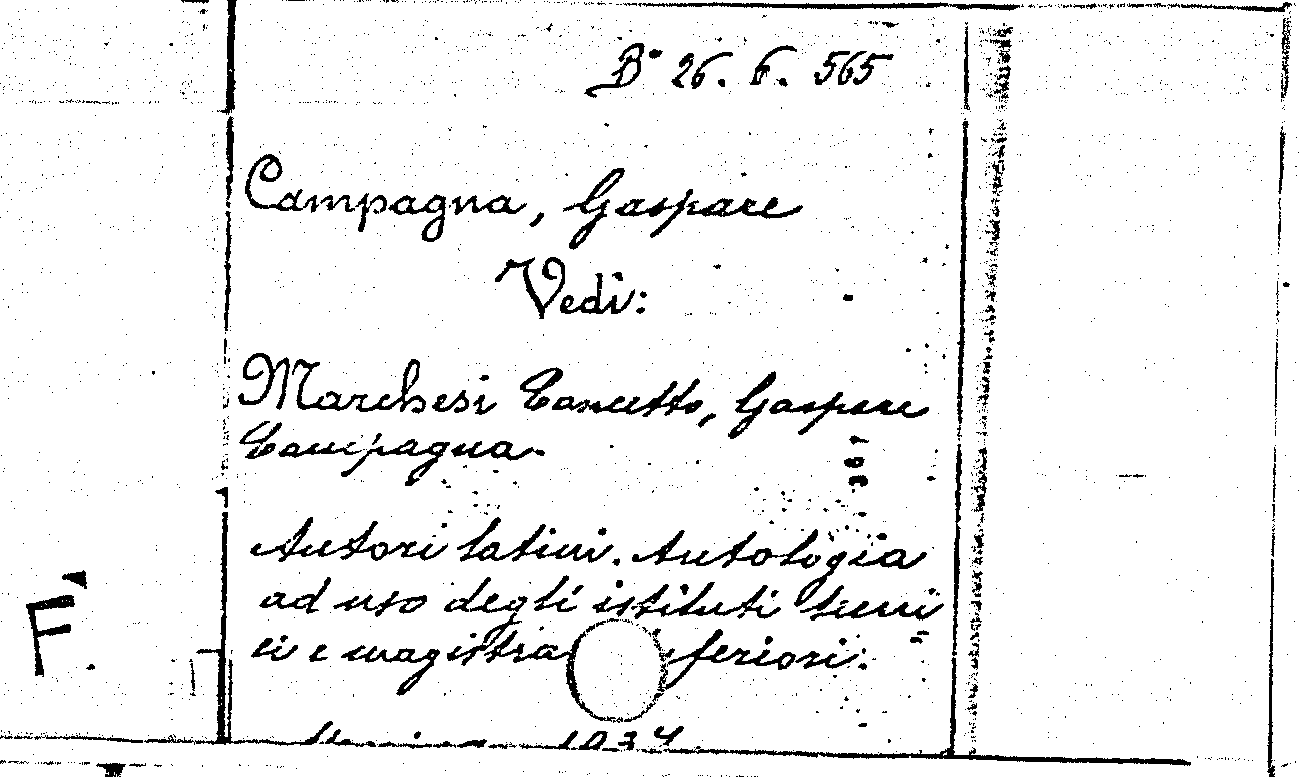 B° 26. 6. 565
Campagna, Gaspare
Vedi:
Marchesi Concetto, Gaspare
Campagna.
301
Autori latini. Antologia
ad uso degli istituti tecni=
ci e magistra feriori.
F.
1934